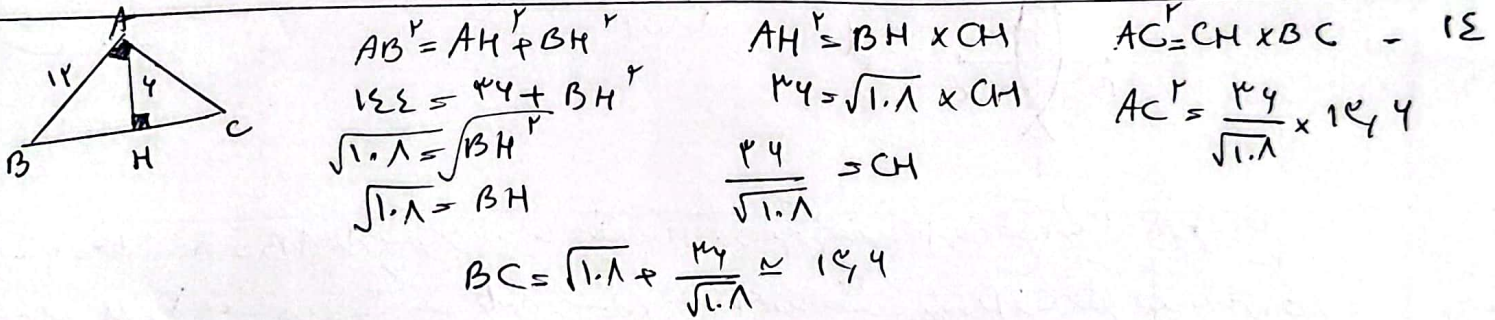 A
۱۲
۶
B
H
C
AB² = AH² + BH²
۱۴۴ = ۳۶ + BH²
√۱۰۸ = √BH²
√۱۰۸ = BH
AH² = BH × CH
۳۶ = √۱۰۸ × CH
۳۶/√۱۰۸ = CH
۱۴ - AC² = CH × BC
AC² = ۳۶/√۱۰۸ × ۱۳,۶
BC = √۱۰۸ + ۳۶/√۱۰۸ ≃ ۱۳,۶